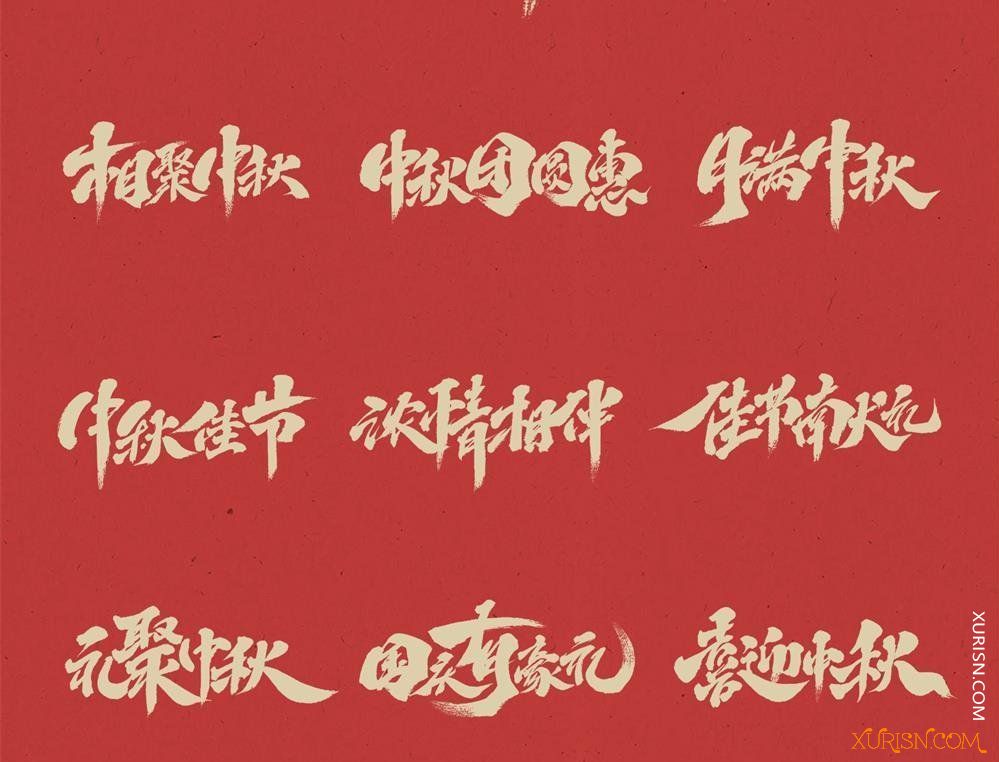 相聚中秋 中秋团圆惠 月满中秋
中秋佳节 浓情相伴 佳节献礼
礼聚中秋 国庆有豪礼 喜迎中秋
XURISN.COM
XURISN.COM